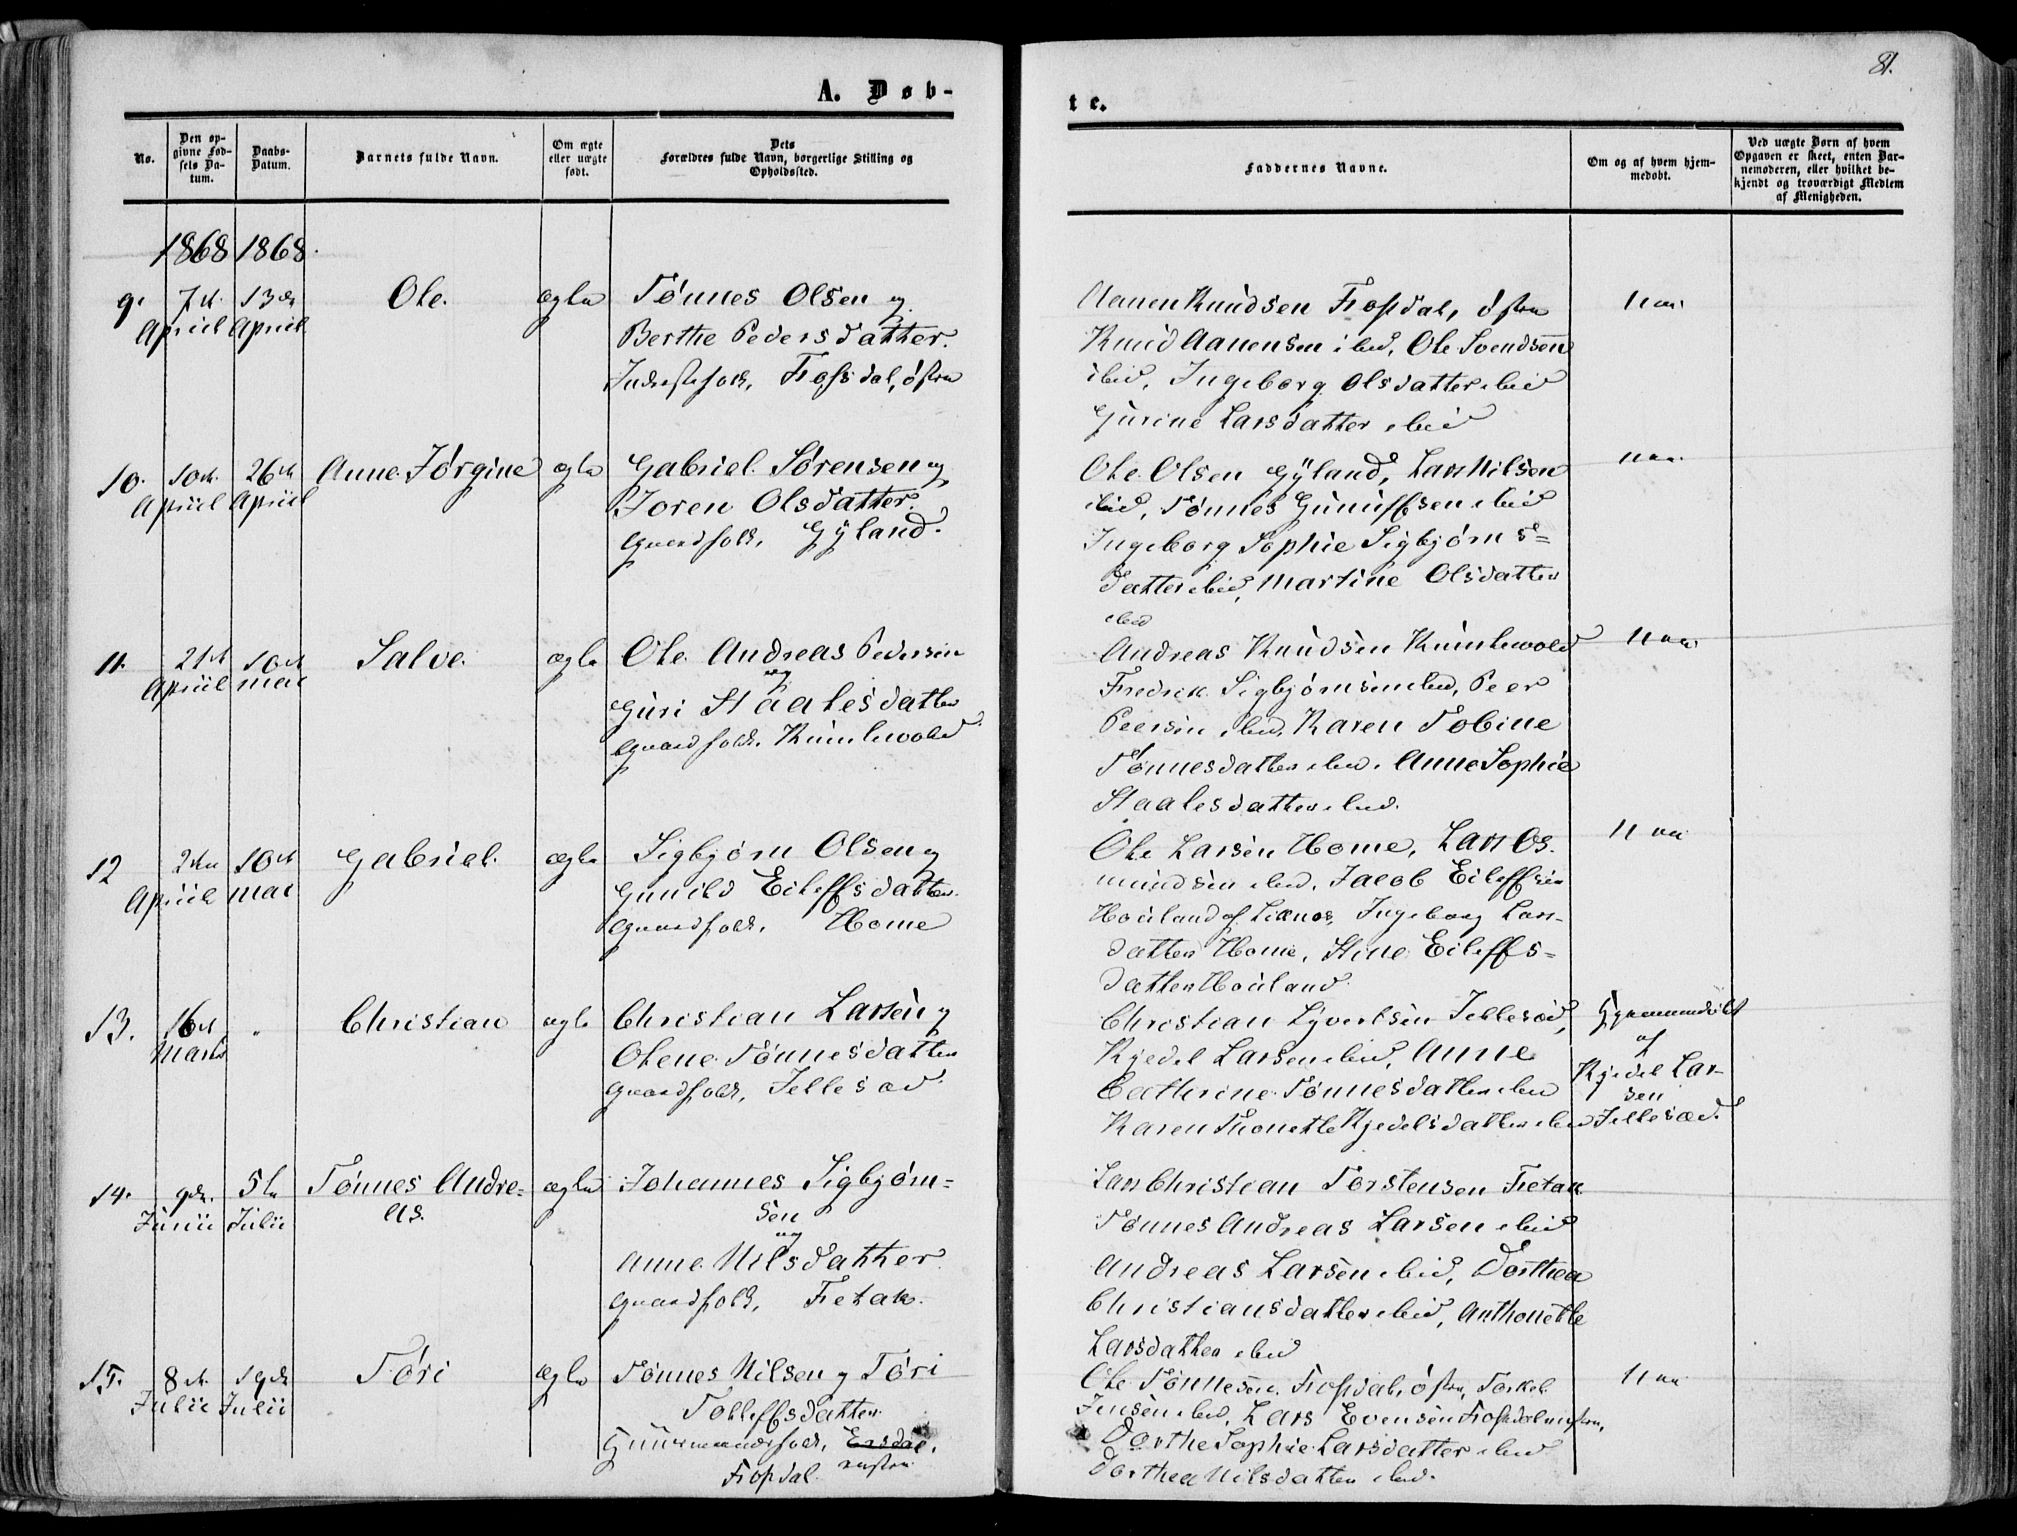 81.
A. Døb-
te.
No.
Den op-
givne Fød-
sels Da-
tum.
Daabs-
Datum.
Barnets fulde Navn.
Om ægte
eller uægte
født.
Dets
Forældres fulde Navn, borgerlige Stilling og
Opholdssted.
Faddernes Navne.
Om og af hvem hjem-
medøbt.
Ved uægte Børn af hvem
Opgaven er skeet, enten Bar-
nemoderen, eller hvilket be-
kjendt og troværdigt Medlem
af Menigheden.
1868 1868.
9. 7de 13de Ole. ægte Tønnes Olsen og
April April Berthe Pedersdatter.
Inderstefolk, Frøsdal, østre
Aanen Knudsen Frøsdal, østre
Knud Aanensen ibid, Ole Svendsen
ibid, Ingeborg Olsdatter ibid
Gurine Larsdatter ibid
10. 10de 26de Anne Jørgine ægte Gabriel Sørensen og
April April Joren Olsdatter.
Gaardfolk, Gyland.
Ole Olsen Gyland, Lars Nilsen
ibid, Tønnes Gunuffsen ibid
Ingeborg Sophie Sigbjørns=
datter ibid, Martine Olsdatter
ibid
11. 21de 10de Salve. ægte Ole Andreas Pedersen
April Mai og
Guri Staalesdatter
Gaardfolk. Kumlevold
Andreas Knudsen Kumlevold
Fredrik Sigbjørnsen ibid, Peer
Peersen ibid, Karen Tobine
Tønnesdatter ibid. Anne Sophie
Staalesdatter ibid.
12 10de Gabriel. ægte Sigbjørn Olsen og
April Mai Gunild Eileffsdatter
Gaardfolk. Home
Ole Larsen Home, Lars Os-
mundsen ibid, Jacob Eileffsen
Houland af Liknes, Ingeborg Lars-
datter Home, Stine Eileffs=
datter Houland.
13. 16de Christian ægte Christian Larsen og
Marts Olene Tønnesdatter
Gaardfolk, Jellesæd.
Christian Syvertsen Jellesæd,
Kjedel Larsen ibid, Anne
Cathrine Tønnesdatter ibid
Karen Thonette Kjedelsdatter ibid
Hjemmedøbt
af
Kjedel Lar-
sen
Jellesæd.
14. 9de 5te Tønnes Andre= ægte Johannes Sigbjørn=
Junii Julii as. sen
og
Anne Nilsdatter
Gaardfolk, Fretak.
Lars Christian Torstensen Fretak
Tønnes Andreas Larsen ibid
Andreas Larsen ibid, Dorthea
Christiansdatter ibid, Anthonette
Larsdatter ibid
15. 8de 19de Tøri ægte Tønnes Nilsen og Tøri
Julii Julii Tolleffsdatter
Huusmandsfolk, Ersdal,
Frøsdal vestre
Ole Tønnesen Frøsdal, østre, Torkel
Jensen ibid, Lars Evensen Frøsdal vestre,
Dorthe Sophie Larsdatter ibid
Dorthea Nilsdatter ibid.